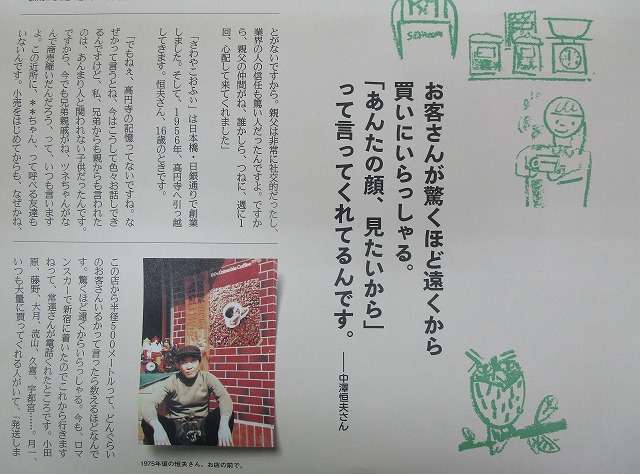 お客さんが驚くほど遠くから
買いにいらっしゃる。
「あんたの顔、見たいから」
って言ってくれてるんです。
——中澤恒夫さん
とがないですから。親父は非常に社交的だったし、
業界の人の信任も篤い人だったんですよ。ですか
ら、親父の仲間がね、誰かしら、つねに、週に1
回、心配して来てくれました」
「さわやこおふぃ」は日本橋・日銀通りで創業
しました。そして、1956年、高円寺へ引っ越
してきます。恒夫さん、16歳のときです。
「でもねえ、高円寺の記憶ってないですね。な
ぜかって言うとね、今はこうして色々お話しでき
るんですけど、私、兄弟からも親からも言われた
のは、あんまり人と関われない子供だったんです。
ですから、今でも兄弟親戚がね、ツネちゃんがな
んで商売継いだんだろう、って、いつも言います
よ。この近所に、**ちゃん、って呼べる友達も
いないんです。小売をはじめてからも、なぜかね、
この店から半径500メートルって、どんぐらい
のお客さんいるかって言ったら数えるほどなんで
す。驚くほど遠くからいらっしゃる。今も、ロマ
ンスカーで新宿に着いたのでこれから行きます
ねって、常連さんが電話くれたところです。小田
原、藤野、大月、流山、久喜、宇都宮……。月一、
いつも大量に買ってくれる人がいて、「発送しま
1975年頃の恒夫さん。お店の前で。